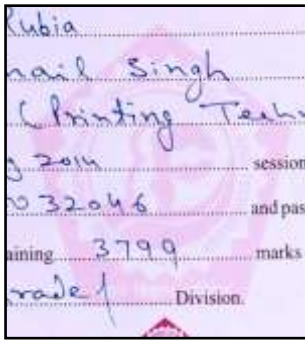 Rubia
nail Singh
(Printing Techn
g 2014 session
032046 and pas
aining 3799 marks
rade 1 Division.